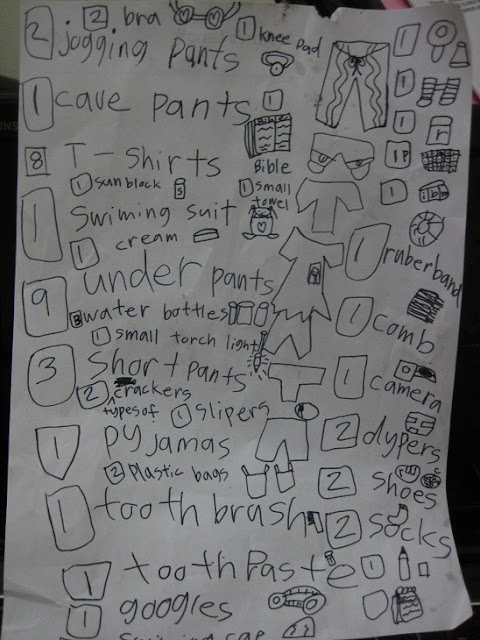 2 bra
1 knee pad
2 jogging pants
1
1 cave pants
1
1
8 T-shirts
Bible
1
1 sun block
1 small towel
1
1 swiming suit
1 cream
1 ruberband
9 under pants
8 water bottles
1 comb
1 small torch light
3 short pants
1 camera
2 types of crackers
1 slipers
2 dypers
1 pyjamas
2 plastic bags
2 shoes
1 tooth brush
2 socks
1 tooth paste
1
1 googles
swiming cap